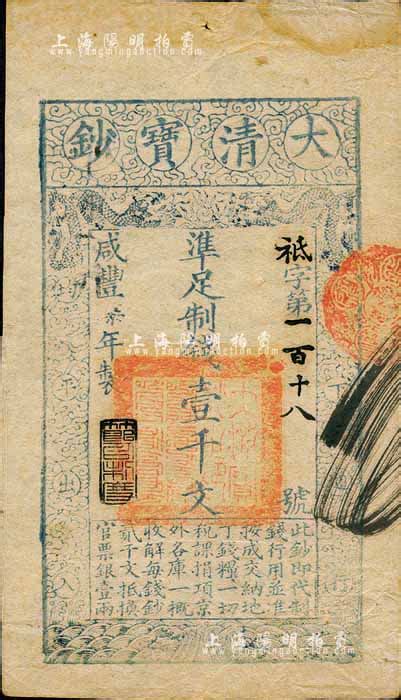 上海陽明拍賣
www.yangmingauction.com
大清寶鈔
下通行
祗字第一百十八號
準足制錢壹千文
咸豐年製
此鈔即代制
錢行用並准
按成交納地
丁錢糧一切
稅課捐項京
外各庫一概
收解每錢鈔
貳千文抵換
官票銀壹兩
均平出入
上海陽明拍賣
www.yangmingauction.com
上海陽明拍賣
www.yangmingauction.com